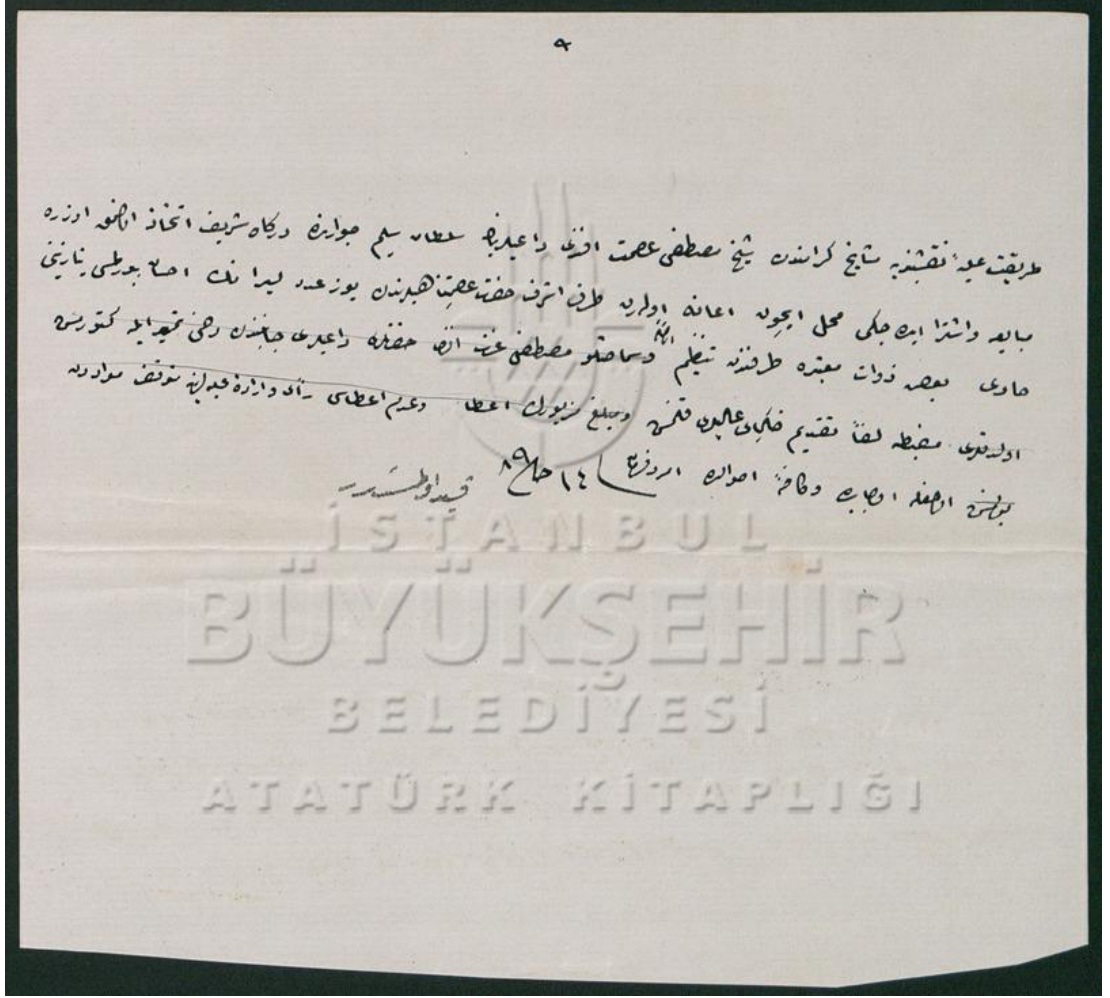 ٩
طريقت عليهٔ نقشبنديه مشايخ كرامندن شيخ مصطفى عصمت افندى داعيلرينه سلطان سليم جوارنده درگاه شريف اتخاذ اولنمق اوزره
مبايعه واشترا ايده جكى محل ايچون اعانه اولەرق طرف اشرف حضرت عصمتپناهيلرندن يوز عدد ليرا نك احسان بيورلمسى نيازينى
حاوى بعض ذوات معتبره طرفندن تنظيم وسماحتلو مصطفى عزت افندى حضرتلرى داعيلرى جانبندن دخى تمهير ايله كتورلمش
اولديغندن مضبطه لفاً تقديم خاكپاى عاليلرى قلنمش ومبلغ مزبورك اعطا وعدم اعطاسى رأى وارادهٔ جليله‌لرينه متوقف موادندن
بولنمش اولمغله اولبابده وكافهٔ احوالده امر وفرمان ١٤ ٨٩
قيد اولنمشدر
İSTANBUL
BÜYÜKŞEHİR
BELEDİYESİ
ATATÜRK KİTAPLIĞI